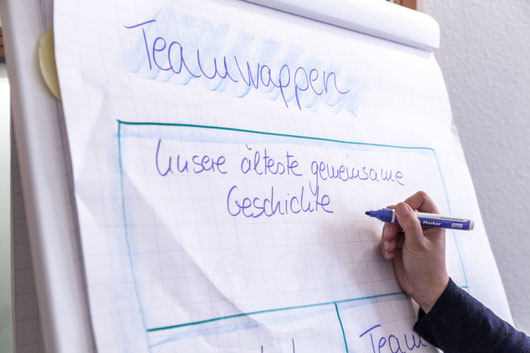 Teamwappen
Unsere älteste gemeinsame
Geschichte
Team
Marker